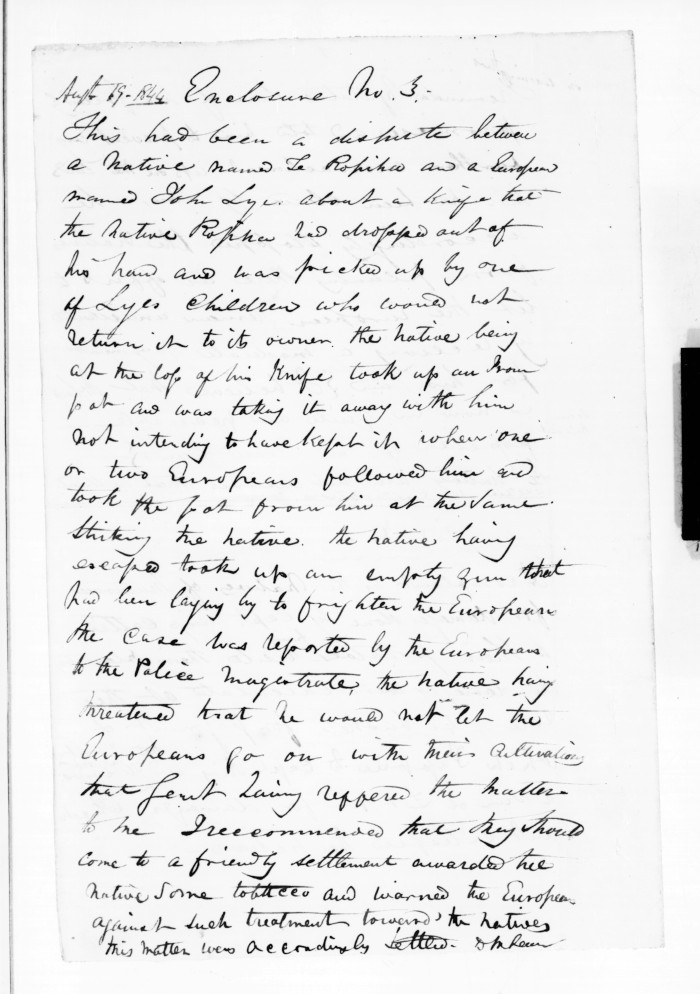 Augt 19 - 1844 Enclosure No. 3.
This had been a dispute between
a Native named Te Ropiha and a European
named John Lye. about a Knife that
the native Ropiha had dropped out of
his hand and was picked up by one
of Lyes Children who would not
return it to its owner. the native being
at the loss of his Knife took up an Iron
pot and was taking it away with him
not intending to have kept it when one
or two Europeans followed him and
took the pot from him at the same
striking the native. the native having
escaped took up an empty gun that
had been laying by to frighten the Europeans
the case was reported by the Europeans
to the Police Magistrate, the native having
threatened that he would not let the
Europeans go on with their cultivations
that Gent having reffered the matter
to me I reccommended that they should
come to a friendly settlement awarded the
native some tobacco and warned the Europeans
against such treatment toward the natives
this matter was accordingly settled.